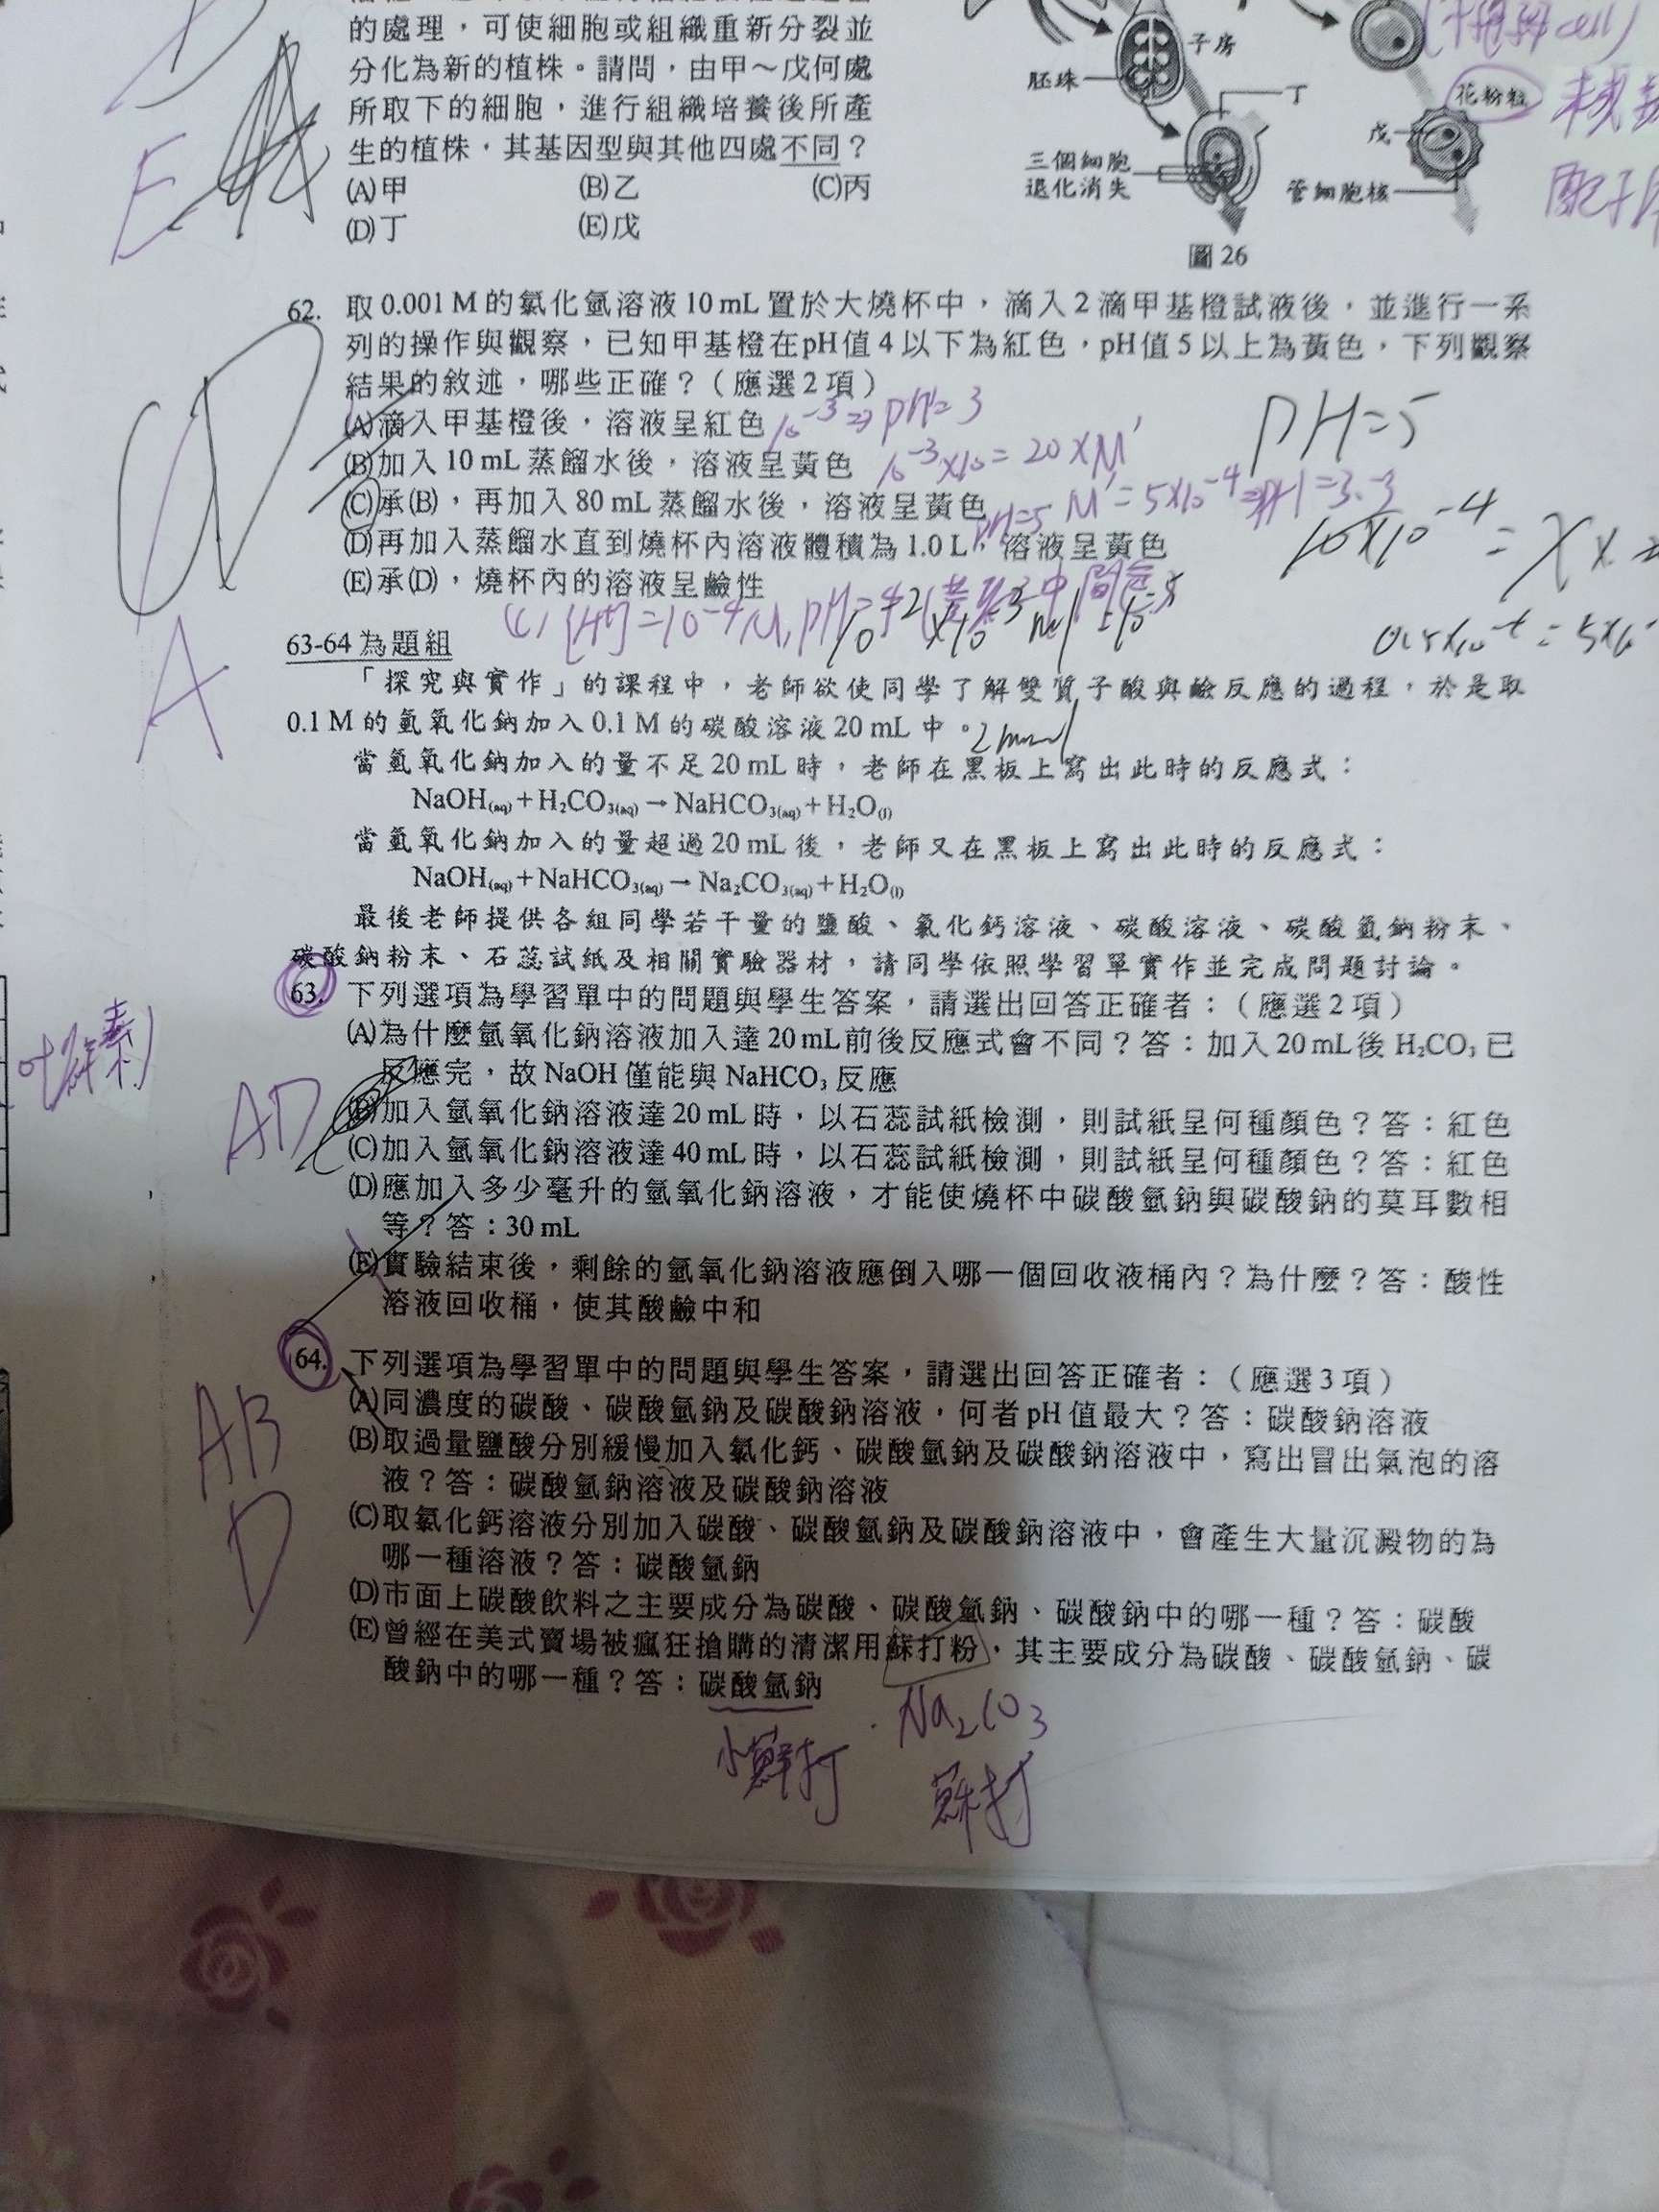 的處理，可使細胞或組織重新分裂並
分化為新的植株。請問，由甲～戊何處
所取下的細胞，進行組織培養後所產
生的植株，其基因型與其他四處不同？
(A)甲 (B)乙 (C)丙
(D)丁 (E)戊
子房
胚珠
丁
三個細胞
退化消失
花粉粒
戊
管細胞核
圖 26
E
62. 取0.001 M的氯化氫溶液10 mL置於大燒杯中，滴入2滴甲基橙試液後，並進行一系
列的操作與觀察，已知甲基橙在pH值4以下為紅色，pH值5以上為黃色，下列觀察
結果的敘述，哪些正確？（應選2項）
(A)滴入甲基橙後，溶液呈紅色 10⁻³⇒PH=3
(B)加入10 mL蒸餾水後，溶液呈黃色 10⁻³×10=20×M'
PH=5
(C)承(B)，再加入80 mL蒸餾水後，溶液呈黃色
PH=5 M'=5×10⁻⁴⇒PH=3.3
(D)再加入蒸餾水直到燒杯內溶液體積為1.0 L，溶液呈黃色
(E)承(D)，燒杯內的溶液呈鹼性
A
63-64為題組
「探究與實作」的課程中，老師欲使同學了解雙質子酸與鹼反應的過程，於是取
0.1 M的氫氧化鈉加入0.1 M的碳酸溶液20 mL中。
當氫氧化鈉加入的量不足20 mL時，老師在黑板上寫出此時的反應式：
NaOH(aq)+H₂CO₃(aq)→NaHCO₃(aq)+H₂O(l)
當氫氧化鈉加入的量超過20 mL後，老師又在黑板上寫出此時的反應式：
NaOH(aq)+NaHCO₃(aq)→Na₂CO₃(aq)+H₂O(l)
最後老師提供各組同學若干量的鹽酸、氯化鈣溶液、碳酸溶液、碳酸氫鈉粉末、
碳酸鈉粉末、石蕊試紙及相關實驗器材，請同學依照學習單實作並完成問題討論。
63. 下列選項為學習單中的問題與學生答案，請選出回答正確者：（應選2項）
(A)為什麼氫氧化鈉溶液加入達20 mL前後反應式會不同？答：加入20 mL後H₂CO₃已
反應完，故NaOH僅能與NaHCO₃反應
AD
(B)加入氫氧化鈉溶液達20 mL時，以石蕊試紙檢測，則試紙呈何種顏色？答：紅色
(C)加入氫氧化鈉溶液達40 mL時，以石蕊試紙檢測，則試紙呈何種顏色？答：紅色
(D)應加入多少毫升的氫氧化鈉溶液，才能使燒杯中碳酸氫鈉與碳酸鈉的莫耳數相
等？答：30 mL
(E)實驗結束後，剩餘的氫氧化鈉溶液應倒入哪一個回收液桶內？為什麼？答：酸性
溶液回收桶，使其酸鹼中和
64. 下列選項為學習單中的問題與學生答案，請選出回答正確者：（應選3項）
(A)同濃度的碳酸、碳酸氫鈉及碳酸鈉溶液，何者pH值最大？答：碳酸鈉溶液
AB
D
(B)取過量鹽酸分別緩慢加入氯化鈣、碳酸氫鈉及碳酸鈉溶液中，寫出冒出氣泡的溶
液？答：碳酸氫鈉溶液及碳酸鈉溶液
(C)取氯化鈣溶液分別加入碳酸、碳酸氫鈉及碳酸鈉溶液中，會產生大量沉澱物的為
哪一種溶液？答：碳酸氫鈉
(D)市面上碳酸飲料之主要成分為碳酸、碳酸氫鈉、碳酸鈉中的哪一種？答：碳酸
(E)曾經在美式賣場被瘋狂搶購的清潔用蘇打粉，其主要成分為碳酸、碳酸氫鈉、碳
酸鈉中的哪一種？答：碳酸氫鈉
小蘇打
Na₂CO₃
蘇打